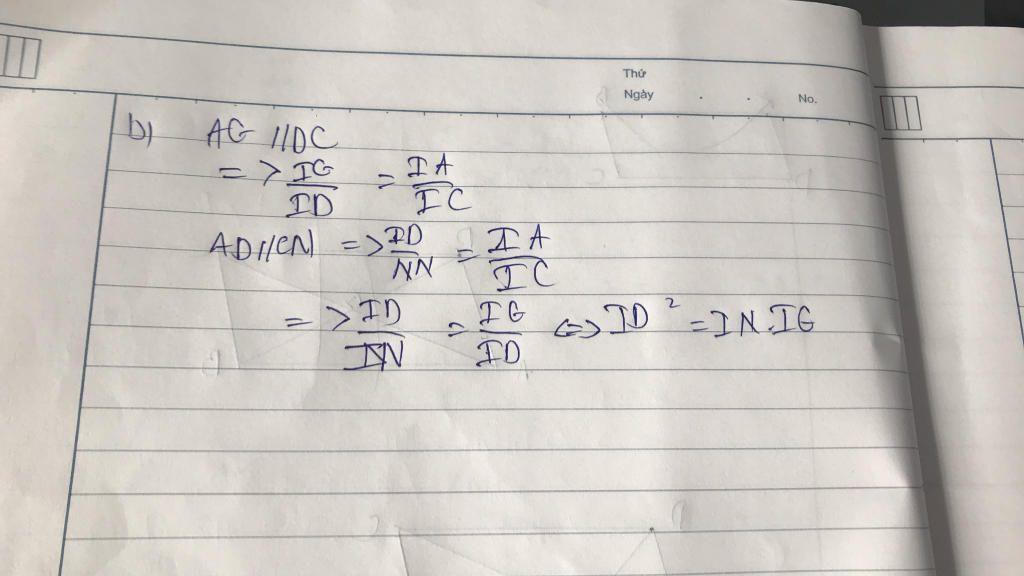 Thứ
Ngày . . No.
b) AG //DC
=> IG/ID = IA/IC
AD//CN => ID/NN = IA/IC
=> ID/IN = IG/ID <=> ID² = IN.IG